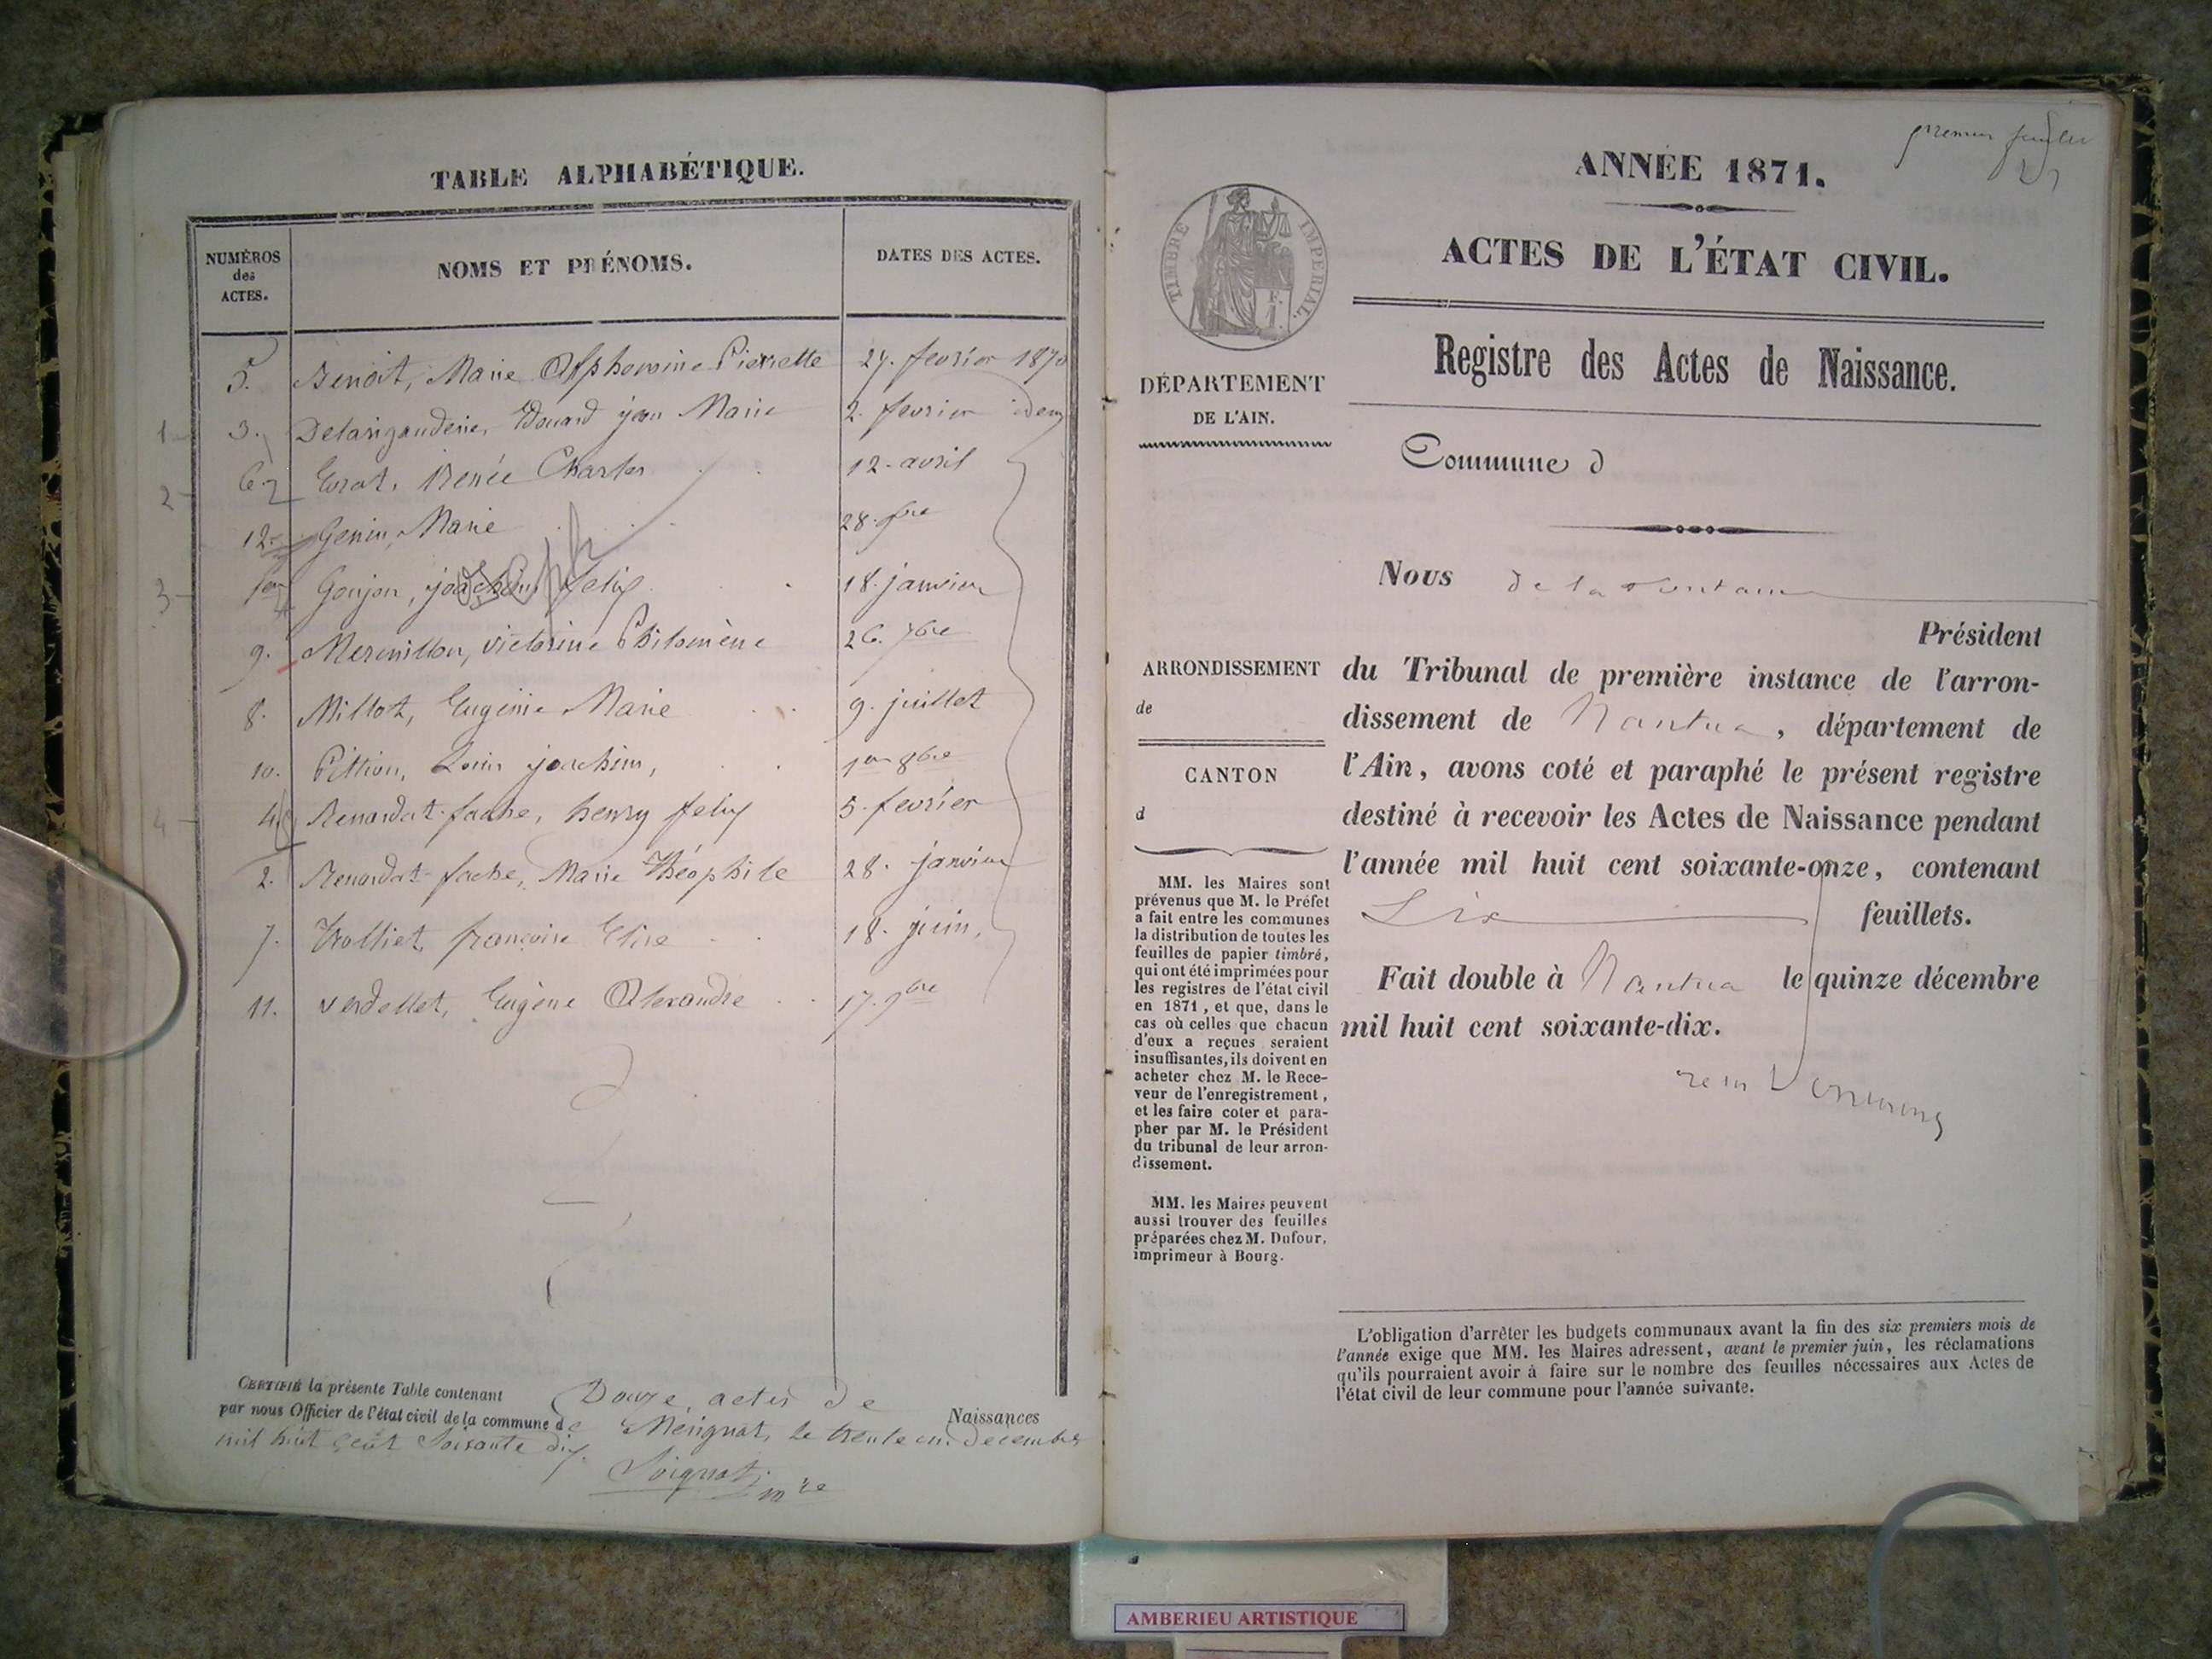 TABLE ALPHABÉTIQUE.
NUMÉROS
des
ACTES.
NOMS ET PRÉNOMS.
DATES DES ACTES.
5. Benoit, Marie Alphonsine Pierrette 27. fevrier 1870
1 3. Edouard jean Marie 2. fevrier idem
2 6. Charles 12. avril
12. Genin, Marie 28.
3 1er Goujon, joseph felix 18. janvier
9. Mermillon, victorine Philomène 26. 7bre
8. Millot, Eugénie Marie 9. juillet
10. Pittion, Louis joachim, 1er 8bre
4 4. Renardat-fache, henry felix 5. fevrier
2. Renardat-fache, Marie Théophile 28. janvier
7. Trolliet, françoise Elise 18. juin,
11. Verdellet, Eugène Alexandre 17. 9bre
CERTIFIÉ la présente Table contenant Douze actes de Naissances
par nous Officier de l'état civil de la commune de Mérignat, le trente un decembre
mil huit cent soixante dix.
Soignat, mre
premier feuillet
ANNÉE 1871.
ACTES DE L'ÉTAT CIVIL.
TIMBRE IMPERIAL.
Registre des Actes de Naissance.
DÉPARTEMENT
DE L'AIN.
Commune d
Nous de la
Président
ARRONDISSEMENT
de
CANTON
d
du Tribunal de première instance de l'arron-
dissement de Nantua, département de
l'Ain, avons coté et paraphé le présent registre
destiné à recevoir les Actes de Naissance pendant
l'année mil huit cent soixante-onze, contenant
Six feuillets.
Fait double à Nantua le quinze décembre
mil huit cent soixante-dix.
MM. les Maires sont
prévenus que M. le Préfet
a fait entre les communes
la distribution de toutes les
feuilles de papier timbré,
qui ont été imprimées pour
les registres de l'état civil
en 1871, et que, dans le
cas où celles que chacun
d'eux a reçues seraient
insuffisantes, ils doivent en
acheter chez M. le Rece-
veur de l'enregistrement,
et les faire coter et para-
pher par M. le Président
du tribunal de leur arron-
dissement.
MM. les Maires peuvent
aussi trouver des feuilles
préparées chez M. Dufour,
imprimeur à Bourg.
L'obligation d'arrêter les budgets communaux avant la fin des six premiers mois de
l'année exige que MM. les Maires adressent, avant le premier juin, les réclamations
qu'ils pourraient avoir à faire sur le nombre des feuilles nécessaires aux Actes de
l'état civil de leur commune pour l'année suivante.
AMBERIEU ARTISTIQUE